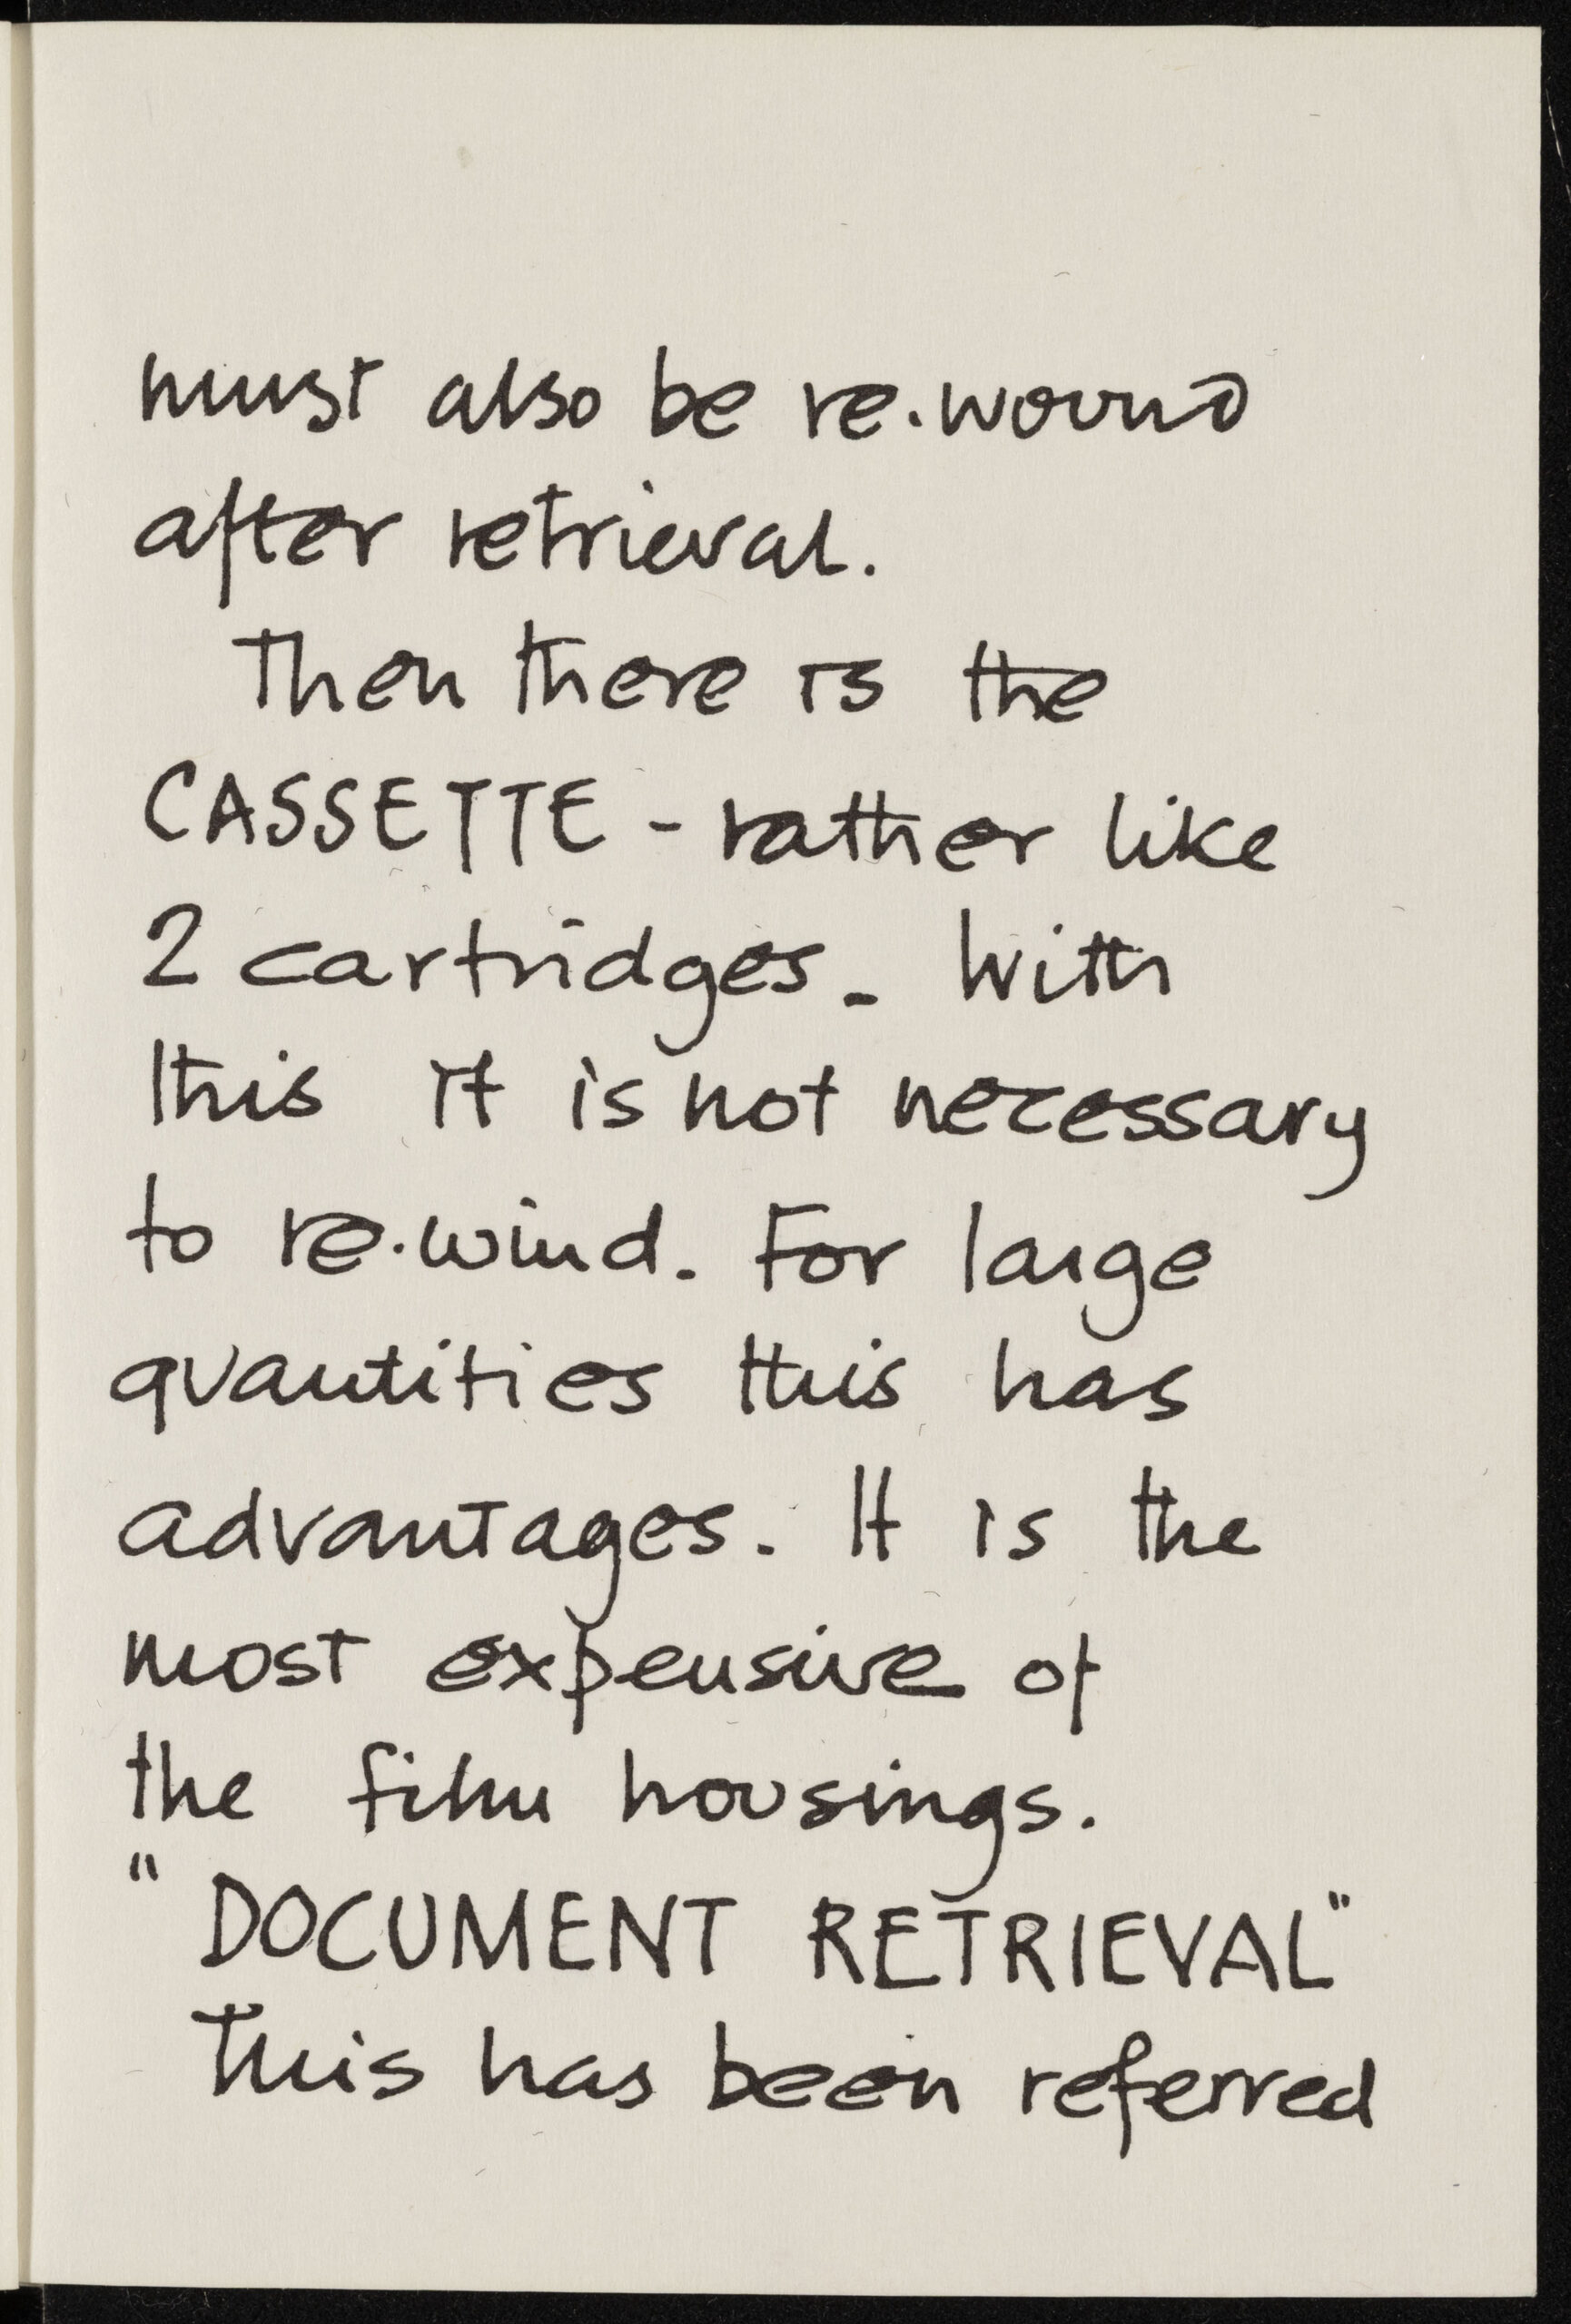 must also be re.wound
after retrieval.
Then there is the
CASSETTE - rather like
2 cartridges. With
this it is not necessary
to re.wind. For large
quantities this has
advantages. It is the
most expensive of
the film housings.
"DOCUMENT RETRIEVAL"
This has been referred